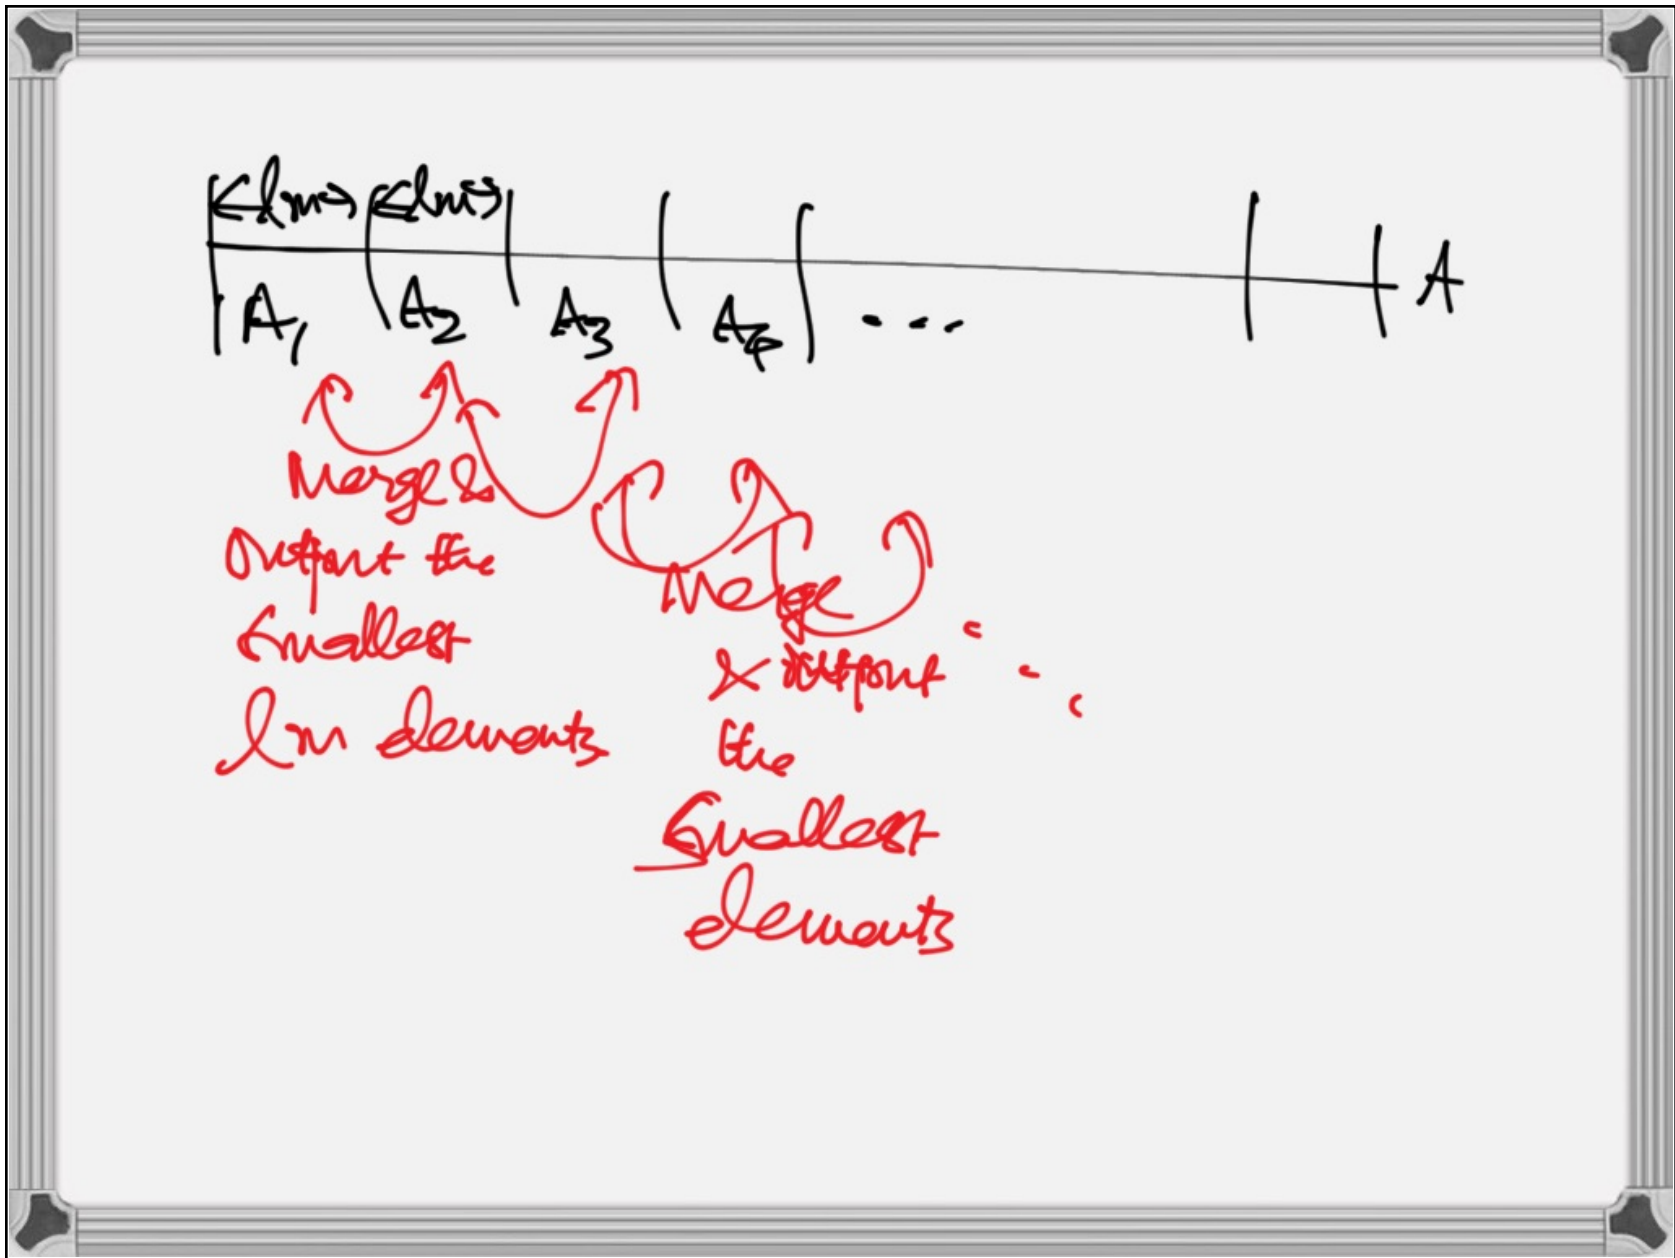 lm lm
A
A1 A2 A3 A4 ...
Merge &
output the
smallest
lm elements
Merge
& output
the
smallest
elements